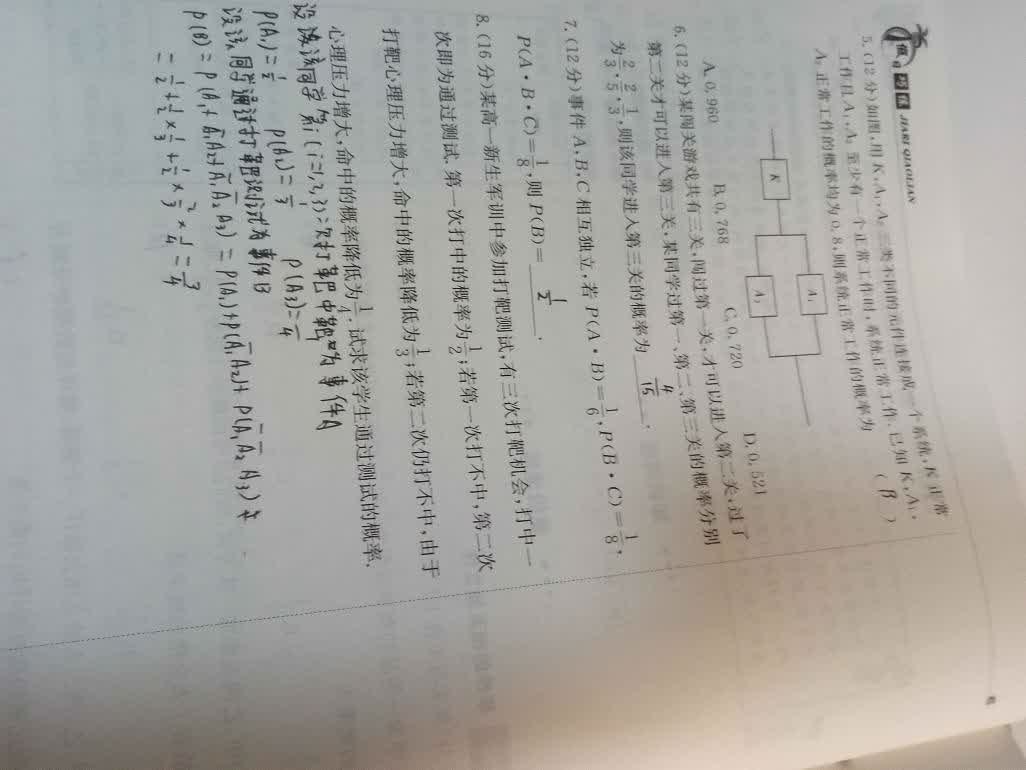 假期为伴 JIAQI QIAOLIAN
5. (12分)如图,用 K,A₁,A₂ 三类不同的元件连接成一个系统,K 正常
工作且 A₁,A₂ 至少有一个正常工作时,系统正常工作.已知 K,A₁,
A₂ 正常工作的概率均为 0.8,则系统正常工作的概率为 ( B )
K
A₁
A₂
A. 0.960 B. 0.768 C. 0.720 D. 0.521
6. (12分)某闯关游戏共有三关,闯过第一关,才可以进入第二关,过了
第二关才可以进入第三关,某同学过第一、第二、第三关的概率分别
为 2/3, 2/5, 1/3, 则该同学进入第三关的概率为 4/15 .
7. (12分)事件 A,B,C 相互独立,若 P(A·B)=1/6, P(B·C)=1/8,
P(A·B·C)=1/8, 则 P(B)= 1/2 .
8. (16分)某高一新生军训中参加打靶测试,有三次打靶机会,打中一
次即为通过测试.第一次打中的概率为 1/2; 若第一次打不中,第二次
打靶心理压力增大,命中的概率降低为 1/3; 若第二次仍打不中,由于
心理压力增大,命中的概率降低为 1/4. 试求该学生通过测试的概率.
设该同学第i(i=1,2,3)次打靶中靶为事件A
P(A₁)=1/2 P(A₂)=1/3 P(A₃)=1/4
设该同学通过打靶测试为事件B
P(B)=P(A₁+A̅₁A₂+A̅₁A̅₂A₃)=P(A₁)+P(A̅₁A₂)+P(A̅₁A̅₂A₃)
=1/2+1/2×1/3+1/2×2/3×1/4=3/4